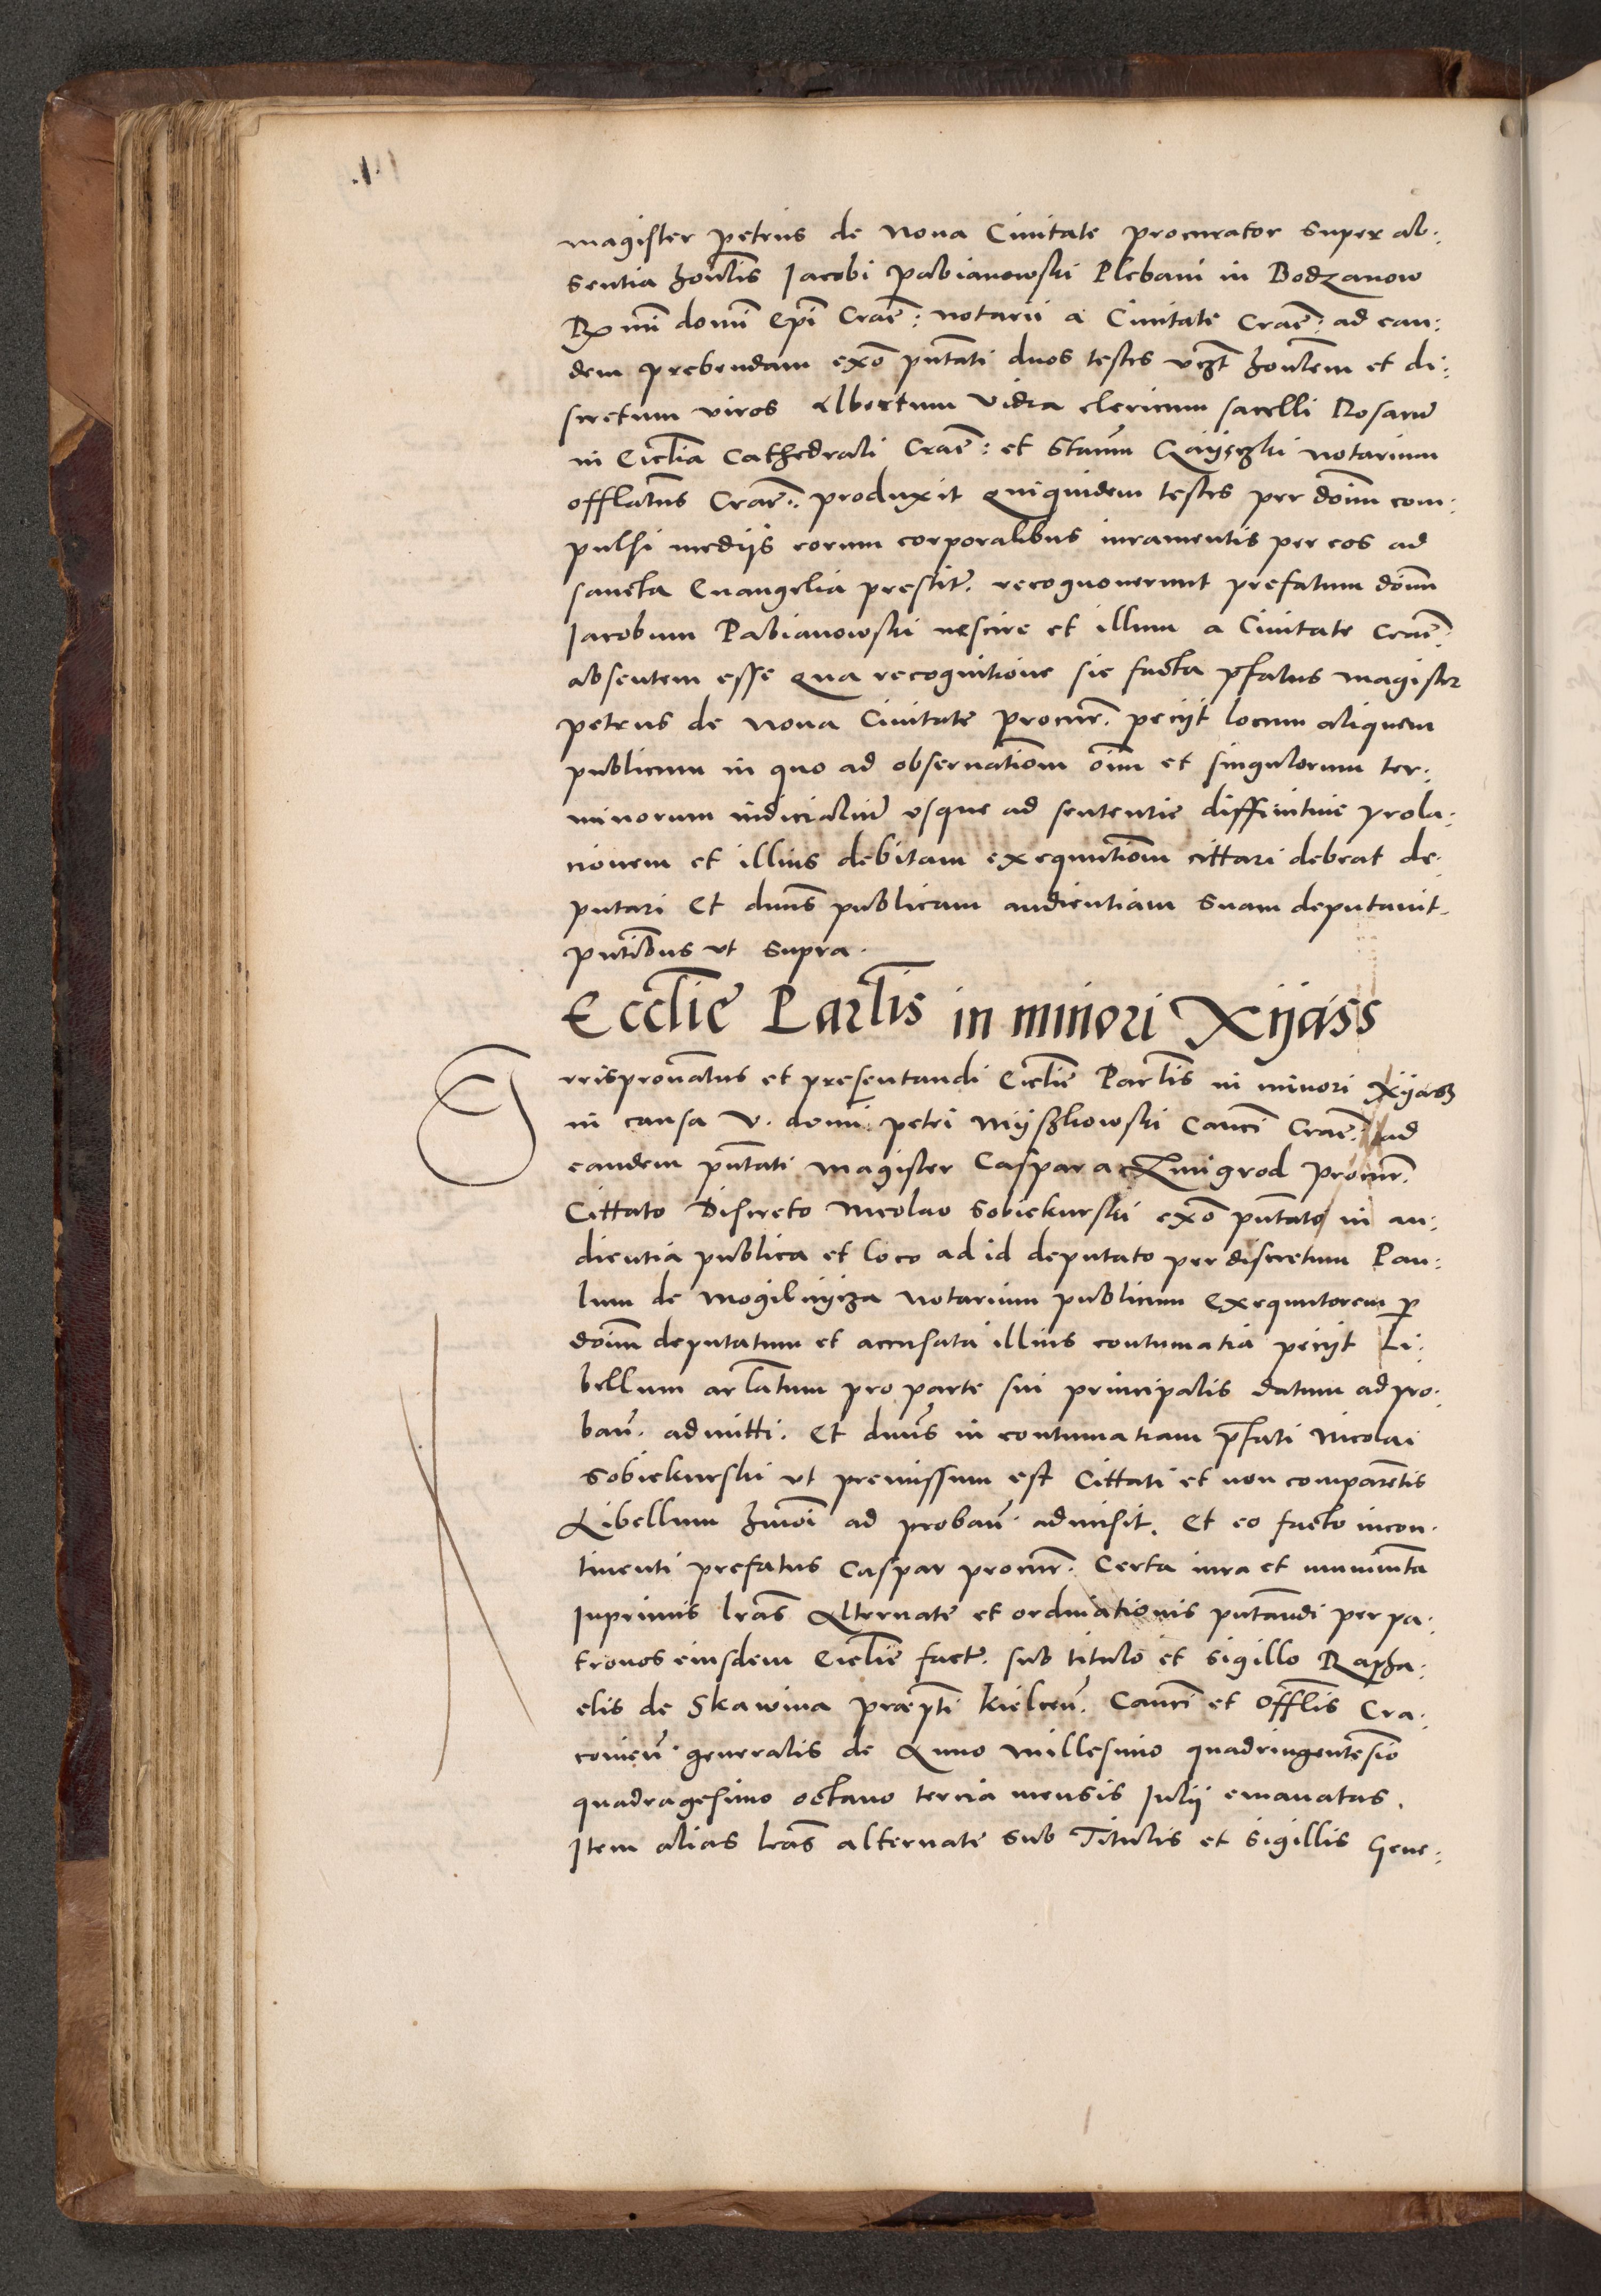 magister petrus de Nova Civitate procurator super ab:
sentia hon̄lis Iacobi Pabianowski Plebani in Bodzanow
Rx mi domi Epi Crac̄: notarii a Civitate Crac̄: ad ean:
dem prebendam exo p̄ntati duos testes vzt hon̄lem et di:
scretum viros Albertum Vidra clericum sacelli Rosaru
in Eccl̄ia Cathedrali Crac̄: et Stan̄m notarium
offlatus Crac̄: produxit Quiquidem testes per dom̄ com:
pulsi medijs eorum corporalibus iuramentis per eos ad
sancta Evangelia prestit. recognoverunt prefatum dom̄
Iacobum Pabianowski nescire et illum a Civitate Crac̄:
absentem esse Qua recognitione sic facta p̄fatus magister
petrus de Nova Civitate procur̄. pecijt locum aliquem
publicum in quo ad observatiom̄ oīm et singulorum ter:
minorum iudicialiu usque ad sententie diffinitive prola:
cionem et illius debitam exequutiom̄ cittari debeat de:
putari Et dn̄us publicam audientiam suam deputavit
p̄ntibus ut supra.
Eccl̄ie Parl̄is in minori Xijass
I urispron̄atus et presentandi Eccl̄ie Parl̄is in minori Xijasz
in causa V. domi petri Mijszkowski Canc̄i Crac̄: ad
eandem p̄ntati magister Caspar a Zmigrod procur̄.
Cittato Discreto Nicolao Sobiekurski exo p̄ntato in au:
dientia publica et loco ad id deputato per discretum Pau:
lum de Mogilnijcza notarium publicum Exequutorem p
dom̄ deputatum et accusata illius contumatia pecijt Li:
bellum arl̄atum pro parte sui principalis datum ad pro:
ban̄. admitti. Et dn̄us in contumatiam p̄fati Nicolai
Sobiekurski ut premissum est Cittati et non comparen̄tis
Libellum hm̄oi ad proban̄ admisit. Et eo facto incon:
tinenti prefatus Caspar procur̄. Certa iura et munim̄ta
Inprimis lr̄as Alternate et ordinationis p̄ntandi per pa:
tronos eiusdem Eccl̄ie fact. sub titulo et sigillo Rapha:
elis de Skawina præpti Kielcen̄. Canc̄i et Offl̄is Cra:
covien̄ generalis de Anno Millesimo quadringentesio
quadragesimo octavo tercia mensis Iulij emanatas.
Item alias lr̄as alternate sub Titulis et sigillis Gene: